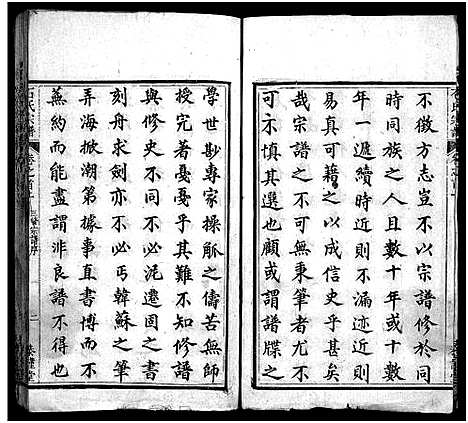 不徵方志豈不以宗譜修於同
時同族之人且數十年或十數
年一遞續時近則不漏迹近則
易真可藉之以成信史乎甚矣
哉宗譜之不可無秉筆者尤不
可以非其選也顧或謂譜牒之
學世尠專家操觚之儔苦無師
授戛戛乎其難不知修譜
與修史不同不必沘遷固之書
刻舟求劍亦不必丐韓蘇之筆
弄海掀潮第據事直書博而不
蕪約而能盡謂非良譜不得也
石氏宗譜
卷之首